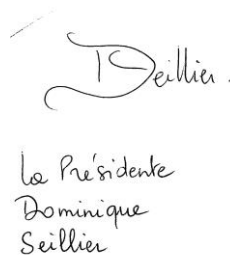 DSeillier.
La Présidente
Dominique
Seillier